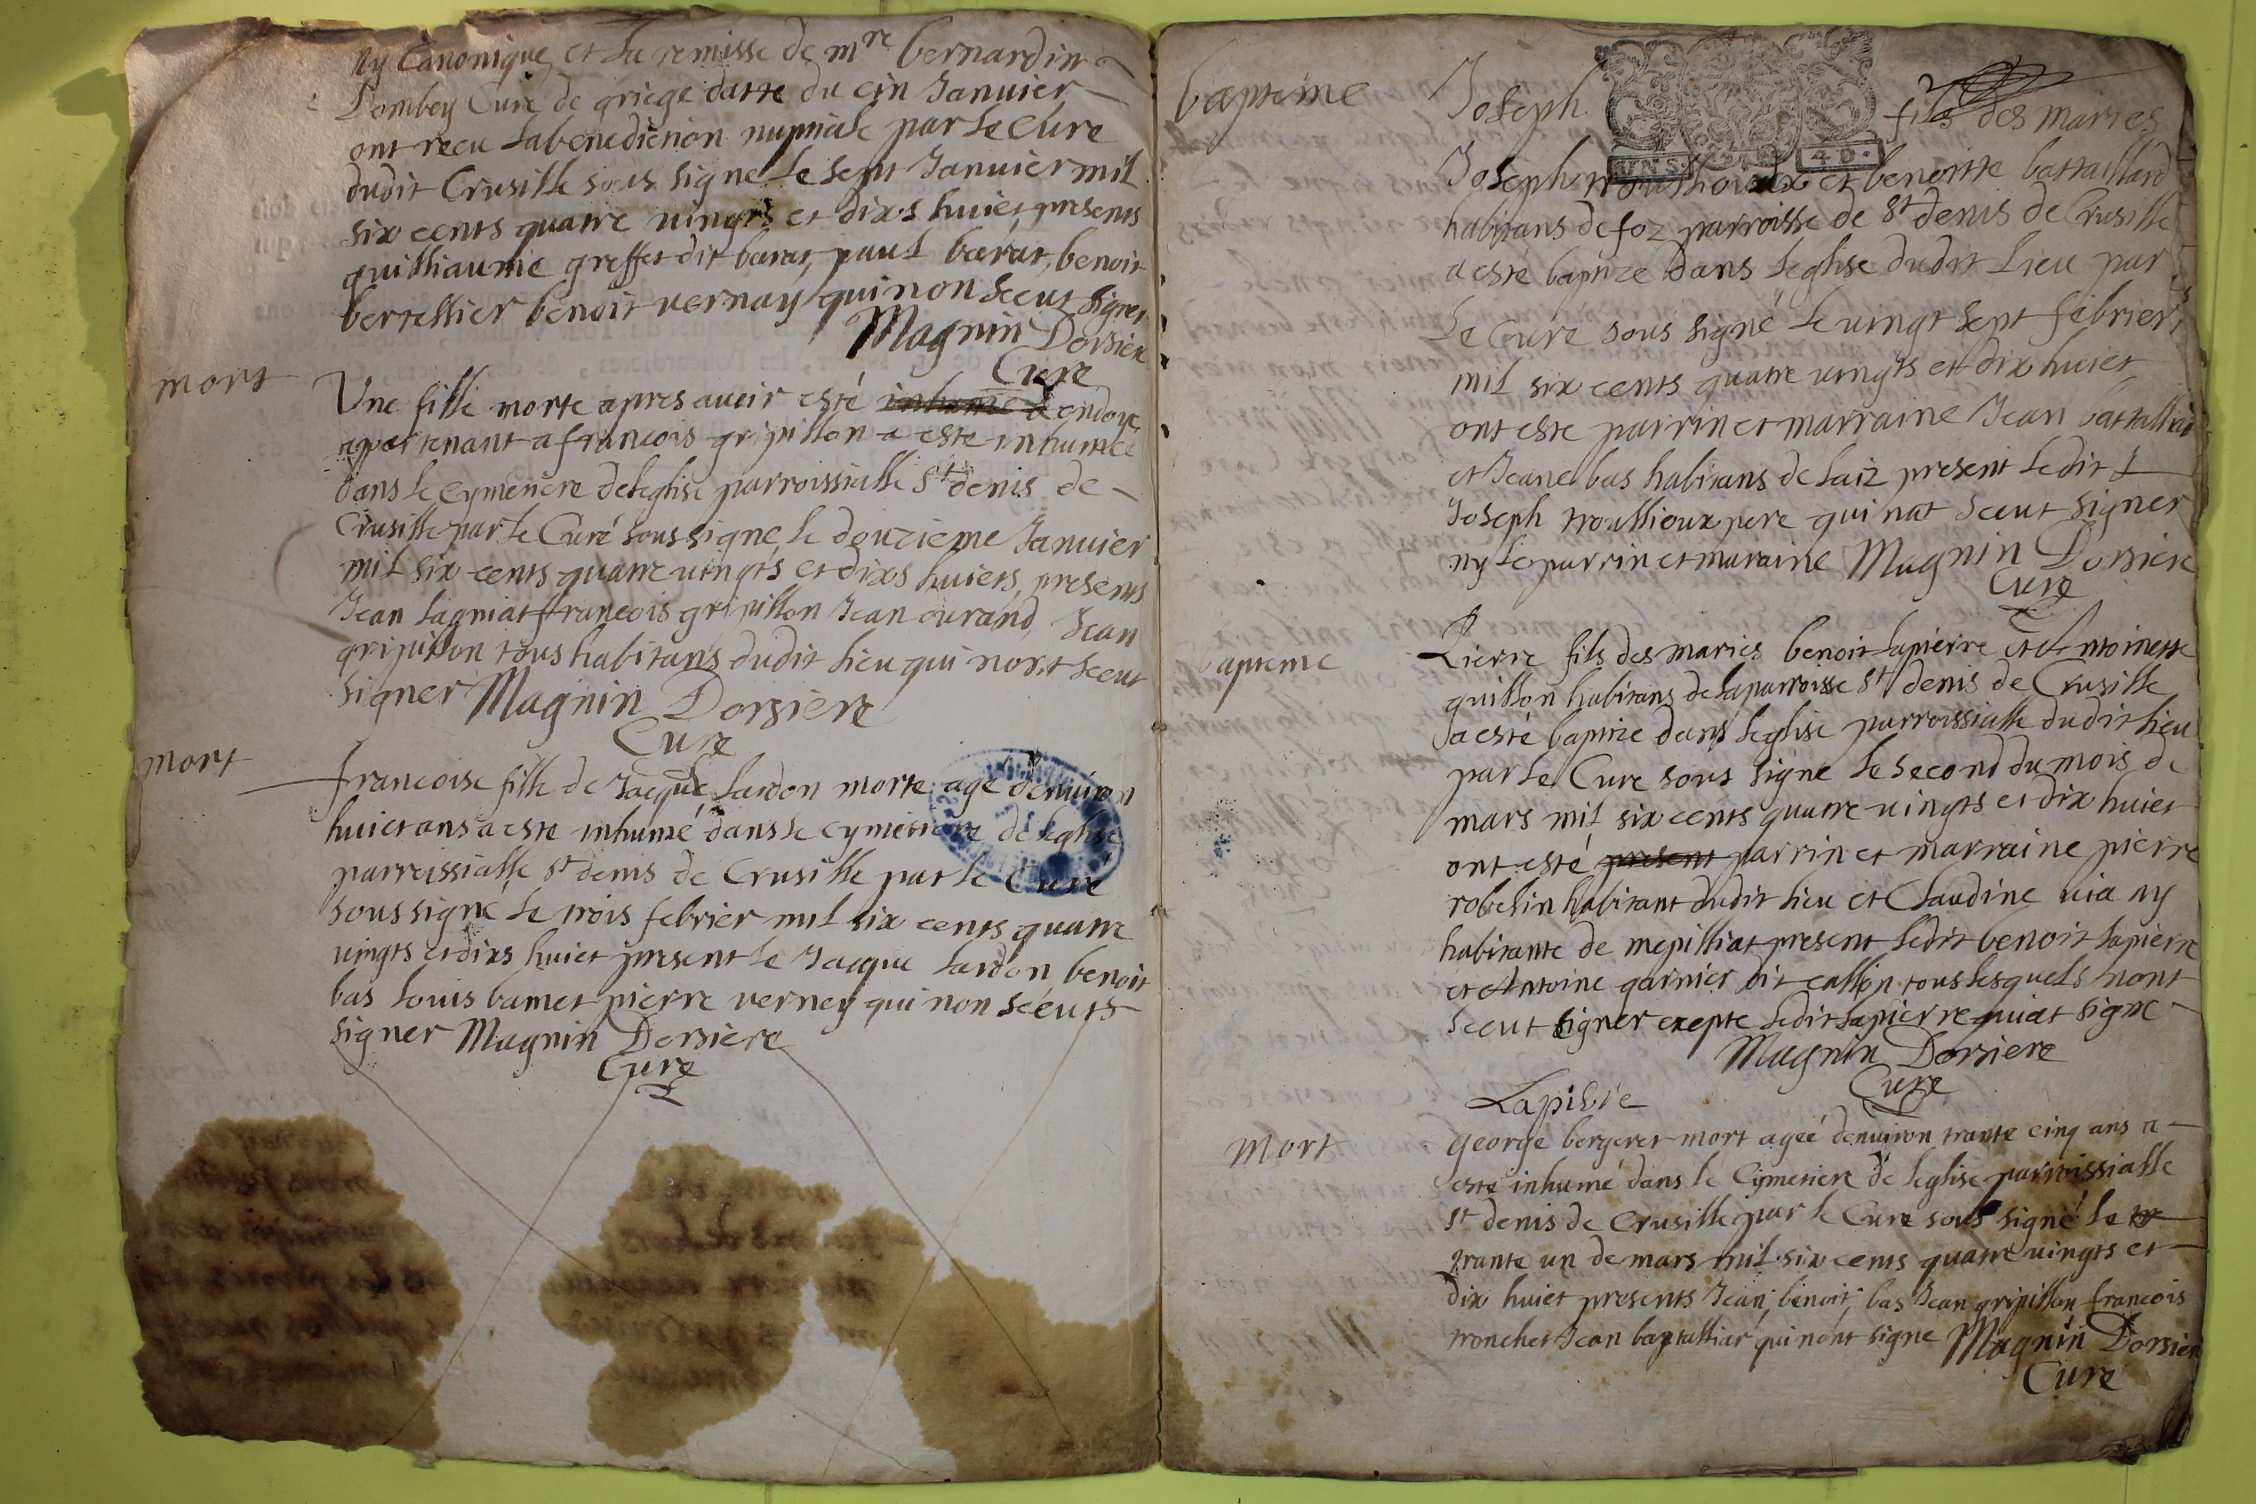 ny Canonique et la remisse de mre bernardin
Dombey Cure de griege datte du cin Januier
ont receu labenediction nuptiale par le Cure
dudit Crusille sous signe le sept Januier mil
six cents quatre uingts et dixs huict presents
guilliaume greffet dit barat, paul barat, benoit
bertellier benoit vernay qui non sceut signer
Magnin Dorsiere
Cure
mort
Une fille morte apres auoir esté inhumé a endoye
apartenant a francois gripillon a este inhumée
dans le cymetiere deleglise parroissialle St denis de
Crusille par le Curé soussigne le douzieme Januier
mil six cents quatre uingts et dixs huicts, presents
Jean lagniat francois gripillon Jean durand, Jean
gripillon tous habitans dudit lieu qui nont sceut
signer Magnin Dorsiere
Cure
mort
francoise fille de Jacque lardon morte age denuiron
huict ans a este inhumé dans le cymetiere de leglise
parroissialle St denis de Crusille par le Curé
soussigne le trois febrier mil six cents quatre
uingts et dixs huict present le Jacque lardon benoit
bas louis bamet pierre verney qui non sceuts
signer Magnin Dorsiere
Cure
baptême
Joseph fils des maries
Joseph troullioux et benoitte battaillard
habitans de foz parroisse de St denis de Crusille
a este baptize dans leglise dudit lieu par
le Cure sous signé le uingt sept febrier
mil six cents quatre uingts et dix huict
ont este parrin et marraine Jean battalliard
et Jeane bas habitans de laiz present ledit
Joseph troullioux pere qui nat sceut signer
ny le parrin et maraine Magnin Dorsiere
Cure
bapteme
Pierre fils des maries benoit lapierre et Antoinette
guillon habitans de laparroisse St denis de Crusille
a esté baptize dans leglise parroissialle dudit lieu
par le Cure sous signe le second du mois de
mars mil six cents quatre uingts et dix huict
ont esté present parrin et marraine pierre
robelin habitant dudit lieu et Claudine uia ny
habitante de mepilliat present ledit benoit lapierre
et Antoine garnier dit callion tous lesquels nont
sceut signer exepte ledit lapierre qui at signe
Magnin Dorsiere
Cure
Lapiere
mort
George bergeret mort ageé denuiron trante cinq ans a
esté inhumé dans le Cymetiere de leglise parroissialle
St denis de Crusille par le Cure sous signé le
trante un de mars mil six cents quatre uingts et
dix huict presents Jean, benoit, bas Jean gripillon francois
tronchet Jean battalliar qui nont signe Magnin Dorsiere
Cure